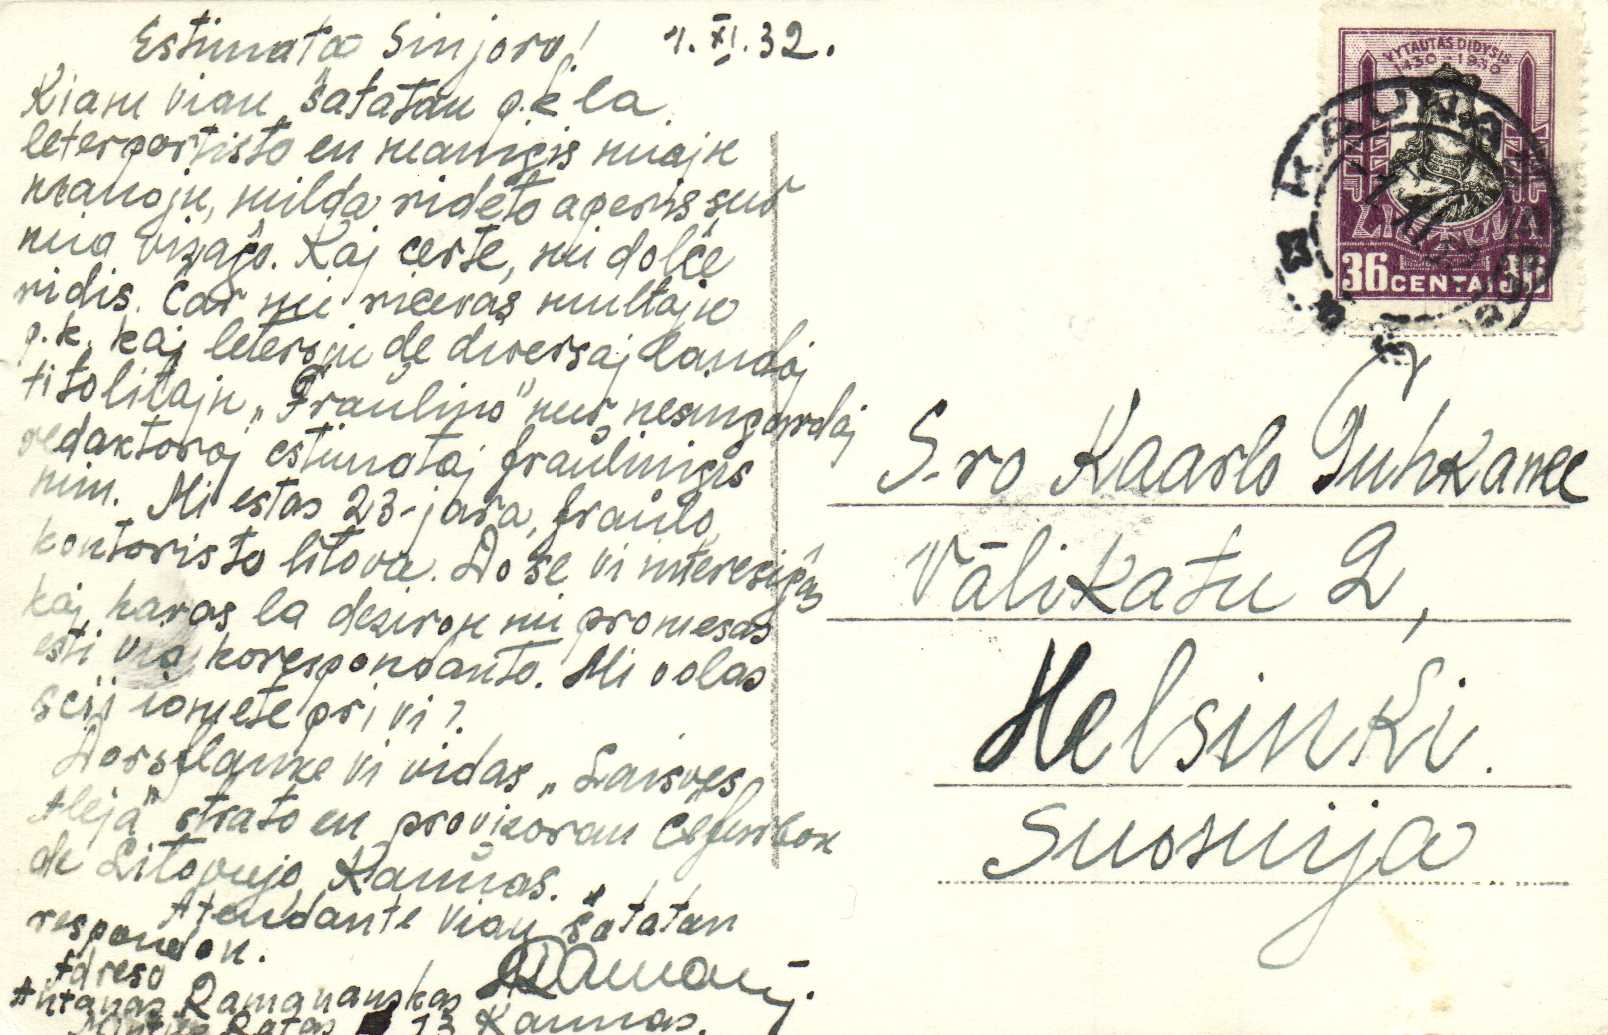 Estimata Sinjoro! 1.XI.32.
Kiam vian ŝatatan p.k la
leterportisto en manigis miajn
manojn, milda rideto aperis sur
mia vizaĝo. Kaj certe, mi dolĉe
ridis. Ĉar mi ricevas multajn
p.k. kaj leterojn de diversaj landoj
titolitajn „Fraŭlino" nur nesingardaj
redaktoroj estimataj fraŭlinigis
min. Mi estas 23-jara, fraŭlo,
kontoristo litova. Do se vi interesiĝas
kaj havas la deziron mi promesas
esti via korespondanto. Mi volas
scii iomete pri vi?
Dorsflanke vi vidas „Laisves
Aleja" strato en provizoran ĉefurbon
de Litovujo, Kaunas.
Atendante vian ŝatatan
respondon.
Adreso
Antanas Ramanauskas
13 Kaunas.
S-ro Kaarlo
Välikatu 2,
Helsinki.
Suomija
VYTAUTAS DIDYSIS
1430 1930
LIETUVA
36 CENTAI 36
KAUNAS